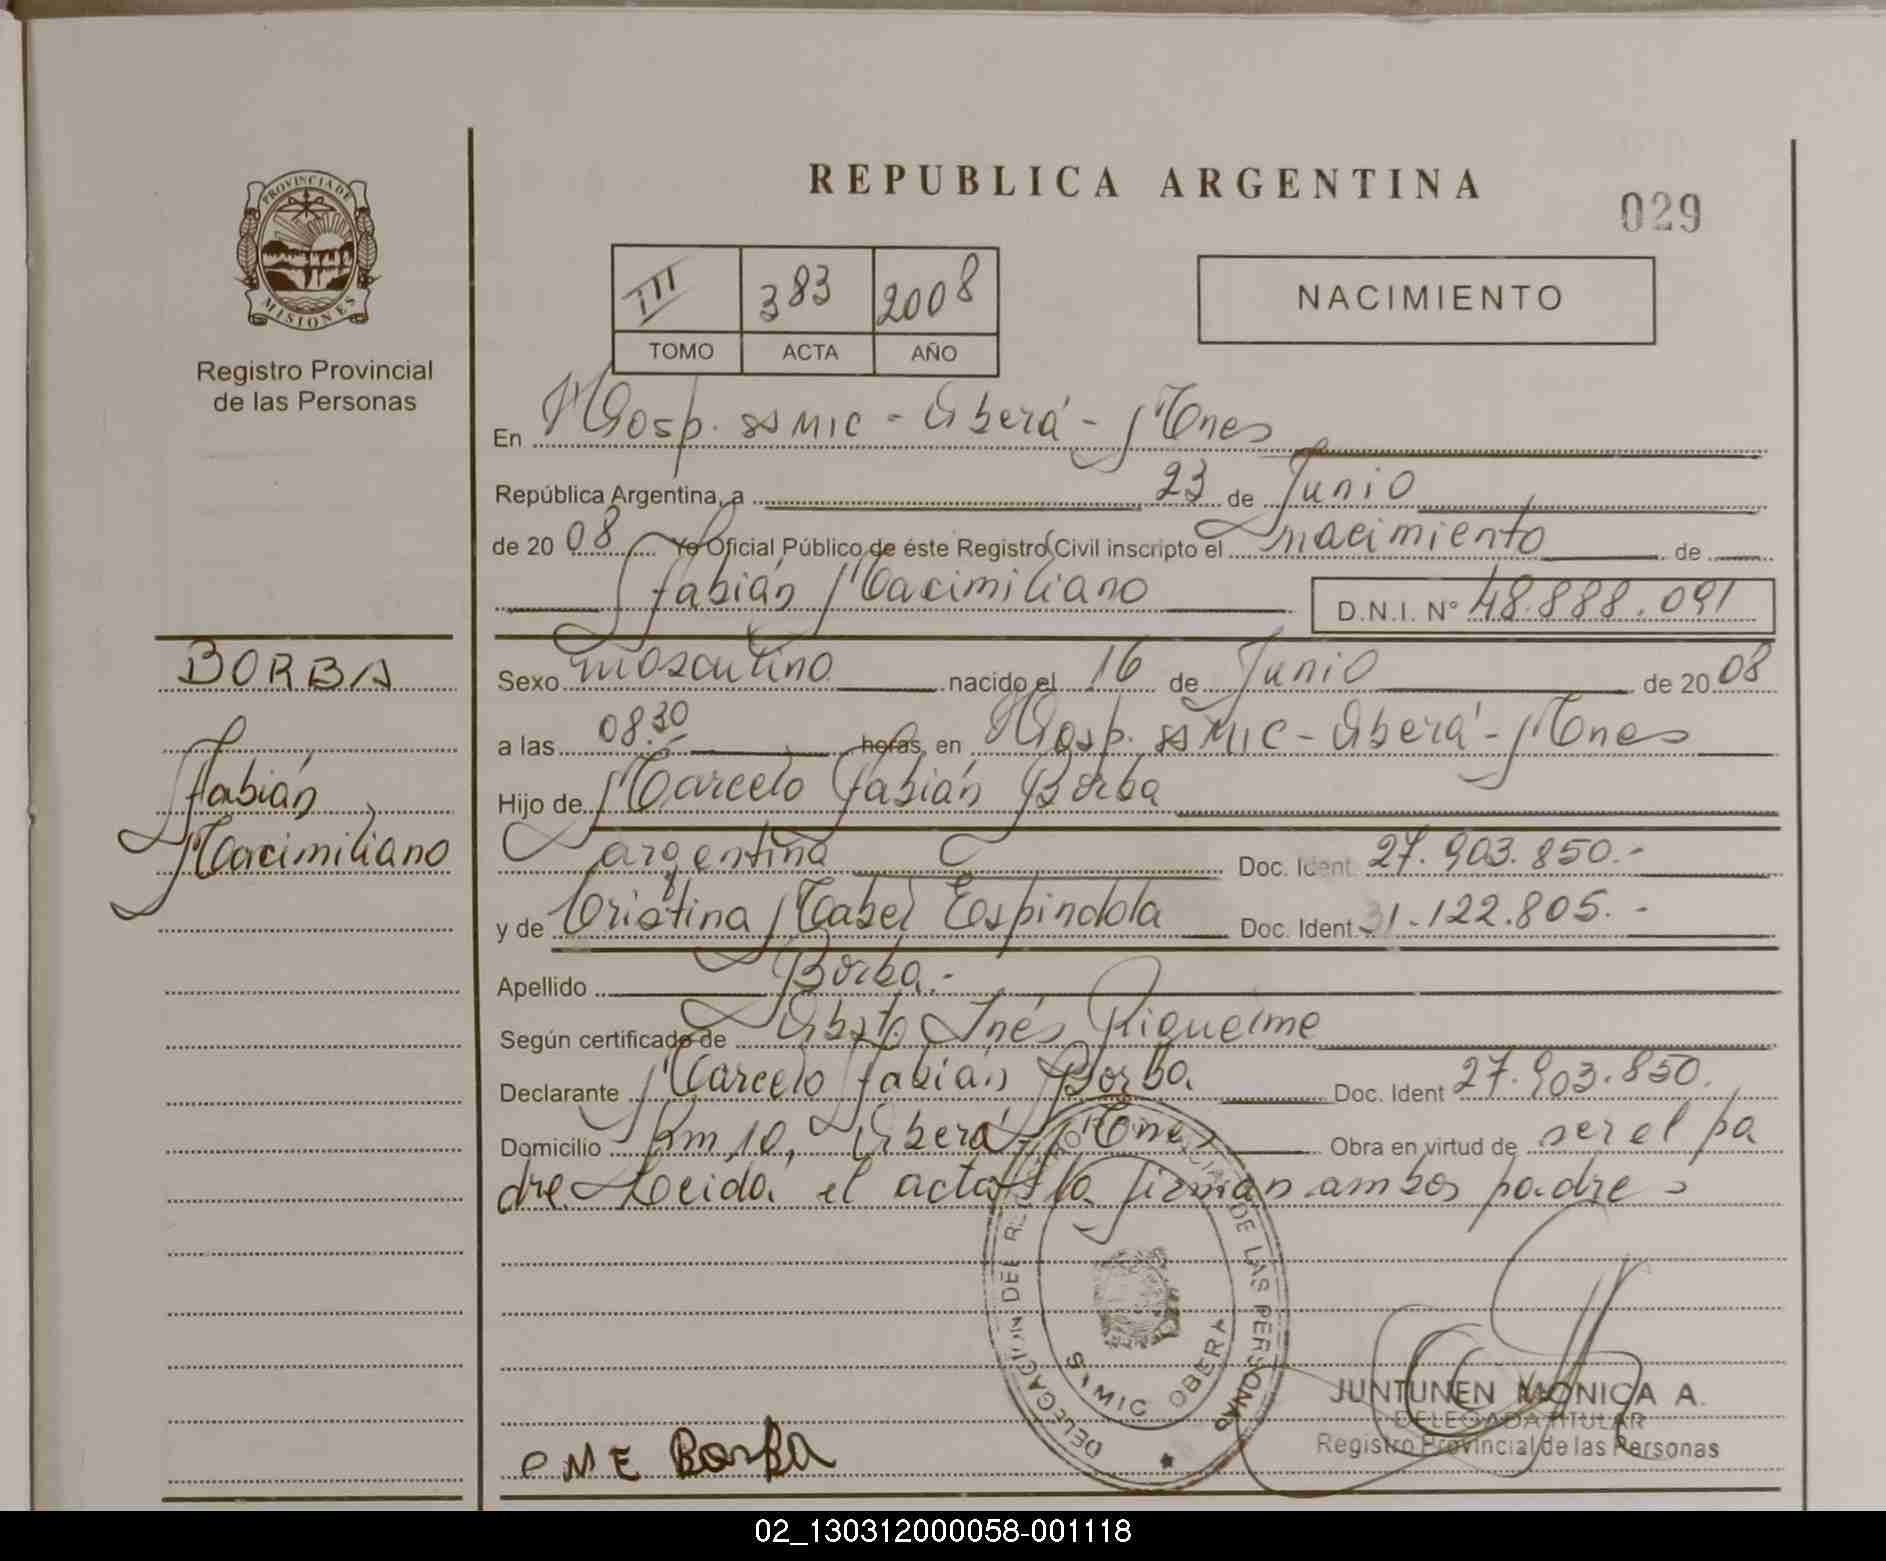 REPUBLICA ARGENTINA
029
PROVINCIA DE
MISIONES
Registro Provincial
de las Personas
III 383 2008
TOMO ACTA AÑO
NACIMIENTO
En Hosp. SSMIC - Oberá - Mnes
República Argentina, a 23 de Junio
de 2008 Yo Oficial Público de éste Registro Civil inscripto el nacimiento de
Fabián Maximiliano D.N.I. N° 48.888.091
BORBA
Fabián
Maximiliano
Sexo masculino nacido el 16 de Junio de 2008
a las 08.30 horas, en Hosp. SSMIC - Oberá - Mnes
Hijo de Marcelo Fabián Borba
argentina Doc. Ident. 27.903.850.-
y de Cristina Mabel Espindola Doc. Ident. 31.122.805.-
Apellido Borba.-
Según certificado de Obsta Inés Riquelme
Declarante Marcelo Fabián Borba. Doc. Ident 27.903.850.
Domicilio Km 10, Oberá - Mnes Obra en virtud de ser el pa
dre Leida el acta la firman ambos padres
DELEGACION DEL REGISTRO PROVINCIAL DE LAS PERSONAS
SAMIC OBERA
JUNTUNEN MONICA A.
DELEGADA TITULAR
Registro Provincial de las Personas
Borba
02_130312000058-001118